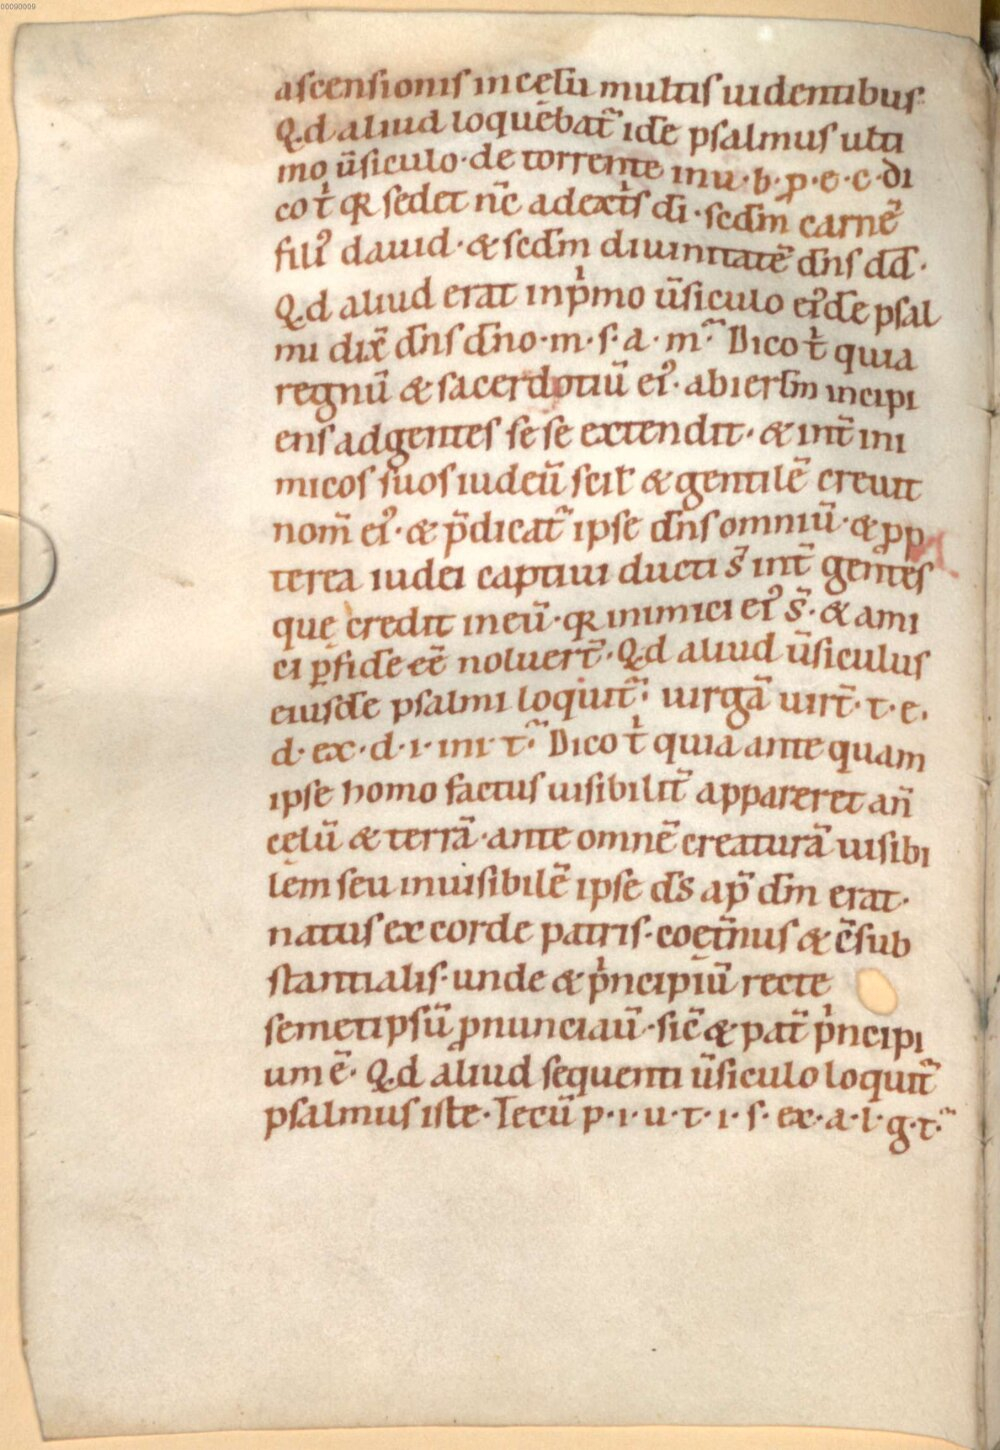 00090009
ascensionis in cęlū multis uidentibus
Q͛d aliud loquebat᷑ idē psalmus ulti
mo ūsiculo · de torrente in u · b · ꝓ · e · c · di
co t̍ qꝛ sedet nc̄ adext̍s dī · scd̄m carnē
filiꝰ dauid · & scd̄m diuinitatē dn̄s dd̄ ·
Q͛d aliud erat in p̍mo ūsiculo eiꝰdē psal
mi dix̄ dn̄s dn̄o · m · s · a · m · Dico t̍ quia
regnū & sacerdotiū eiꝰ · ab ierl̄m incipi
ens ad gentes sese extendit · & int̄ ini
micos suos iudeū scil̄ & gentilē creuit
nom̄ eiꝰ · & p̄dicat᷑ ipse dn̄s omniū · & ꝓp
terea iudei captiui ducti s̄ int̄ gentes
quę credit in eū · qꝛ inimici eiꝰ s̄ · & ami
ci ꝑ fidē eē noluert̄ · Q͛d aliud ūsiculus
eiusdē psalmi loquit᷑ · uirgā uirt̄ · t · e ·
d · ex · d · i · ini · t · Dico t̍ quia ante quam
ipse homo factus uisibilit̄ appareret añ
cęlū & terrā · ante omnē creaturā uisibi
lem seu inuisibilē ipse ds̄ ap̄ dm̄ erat ·
natus ex corde patris · coęt̄nus & c̄sub
stantialis · unde & p̍ncipiū recte
semetipsū ꝓnunciaū · sic̄ & pat̄ p̍ncipi
um ē · Q͛d aliud sequenti ūsiculo loquit᷑
psalmus iste · Tecū p · i · u · t · i · s · ex · a · l · g · t ·